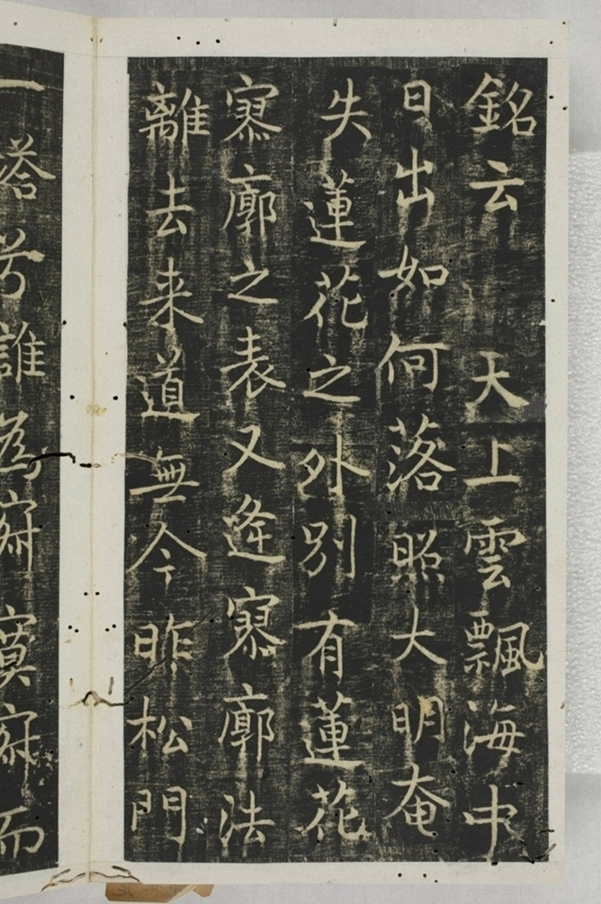 銘云　天上雲飄海中
日出如何落照大明奄
失蓮花之外別有蓮花
寥廓之表又逢寥廓法
離去来道無今昨松門
一塔兮誰為寂寞寂而